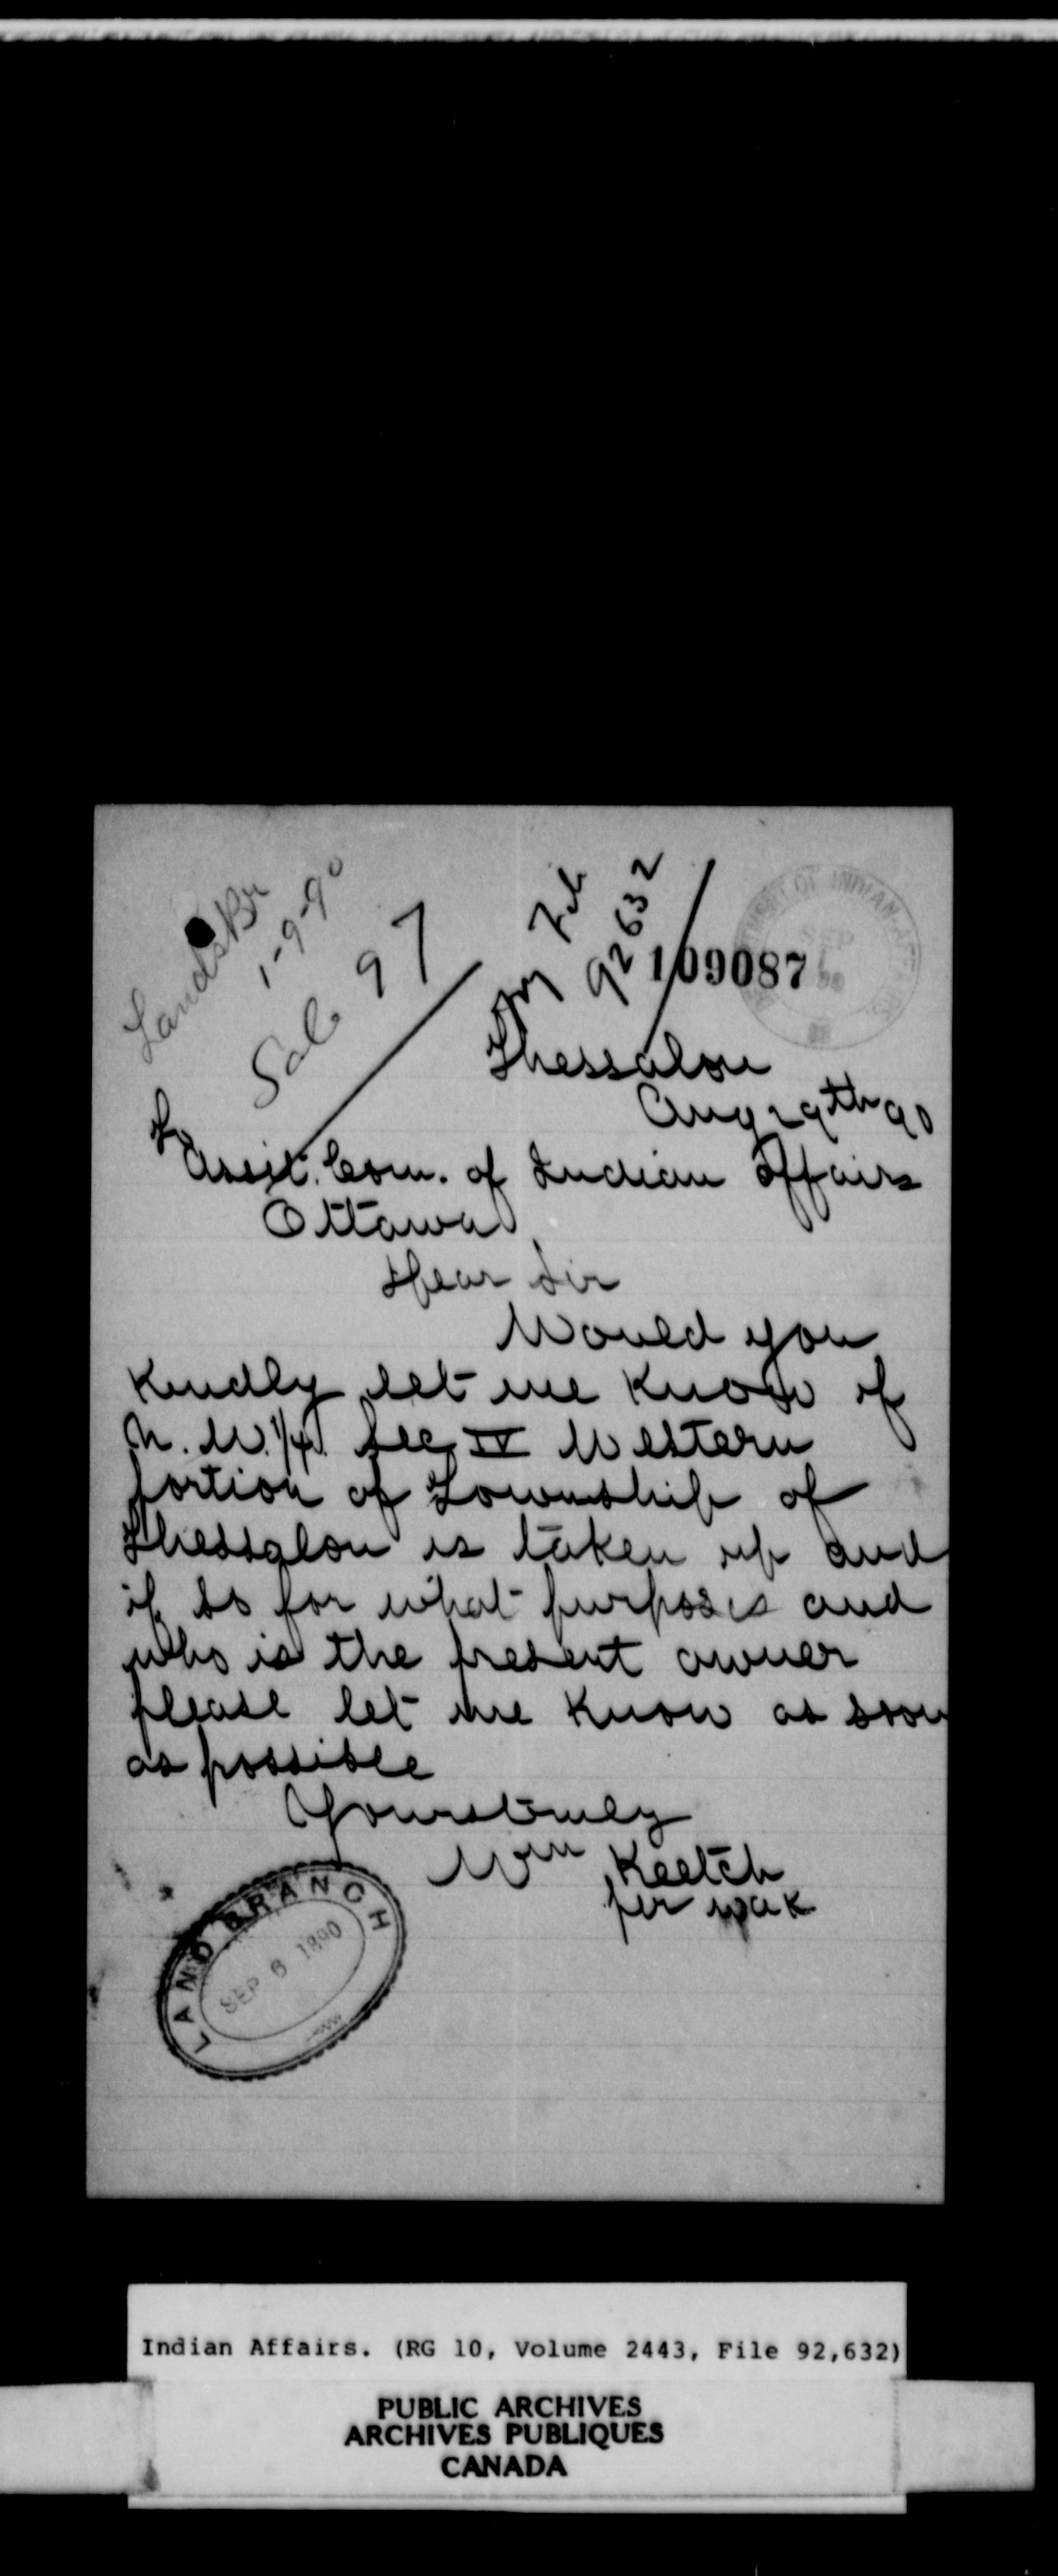 Lands Br
1-9-90
Sale 97
Fih
92632
109087
DEPARTMENT OF INDIAN AFFAIRS
SEP
90
Thessalon
Aug 29th 90
To
Assit. Com. of Indian Affairs
Ottawa
Dear Sir
Would you
Kindly let me know if
N.W. 1/4 Sec IV Western
portion of Township of
Thessalon is taken up and
if so for what purposes and
who is the present owner
please let me know as soon
as possible
Yours truly
Wm Keetch
per wak
LAND BRANCH
SEP 6 1890
Indian Affairs. (RG 10, Volume 2443, File 92,632)
PUBLIC ARCHIVES
ARCHIVES PUBLIQUES
CANADA